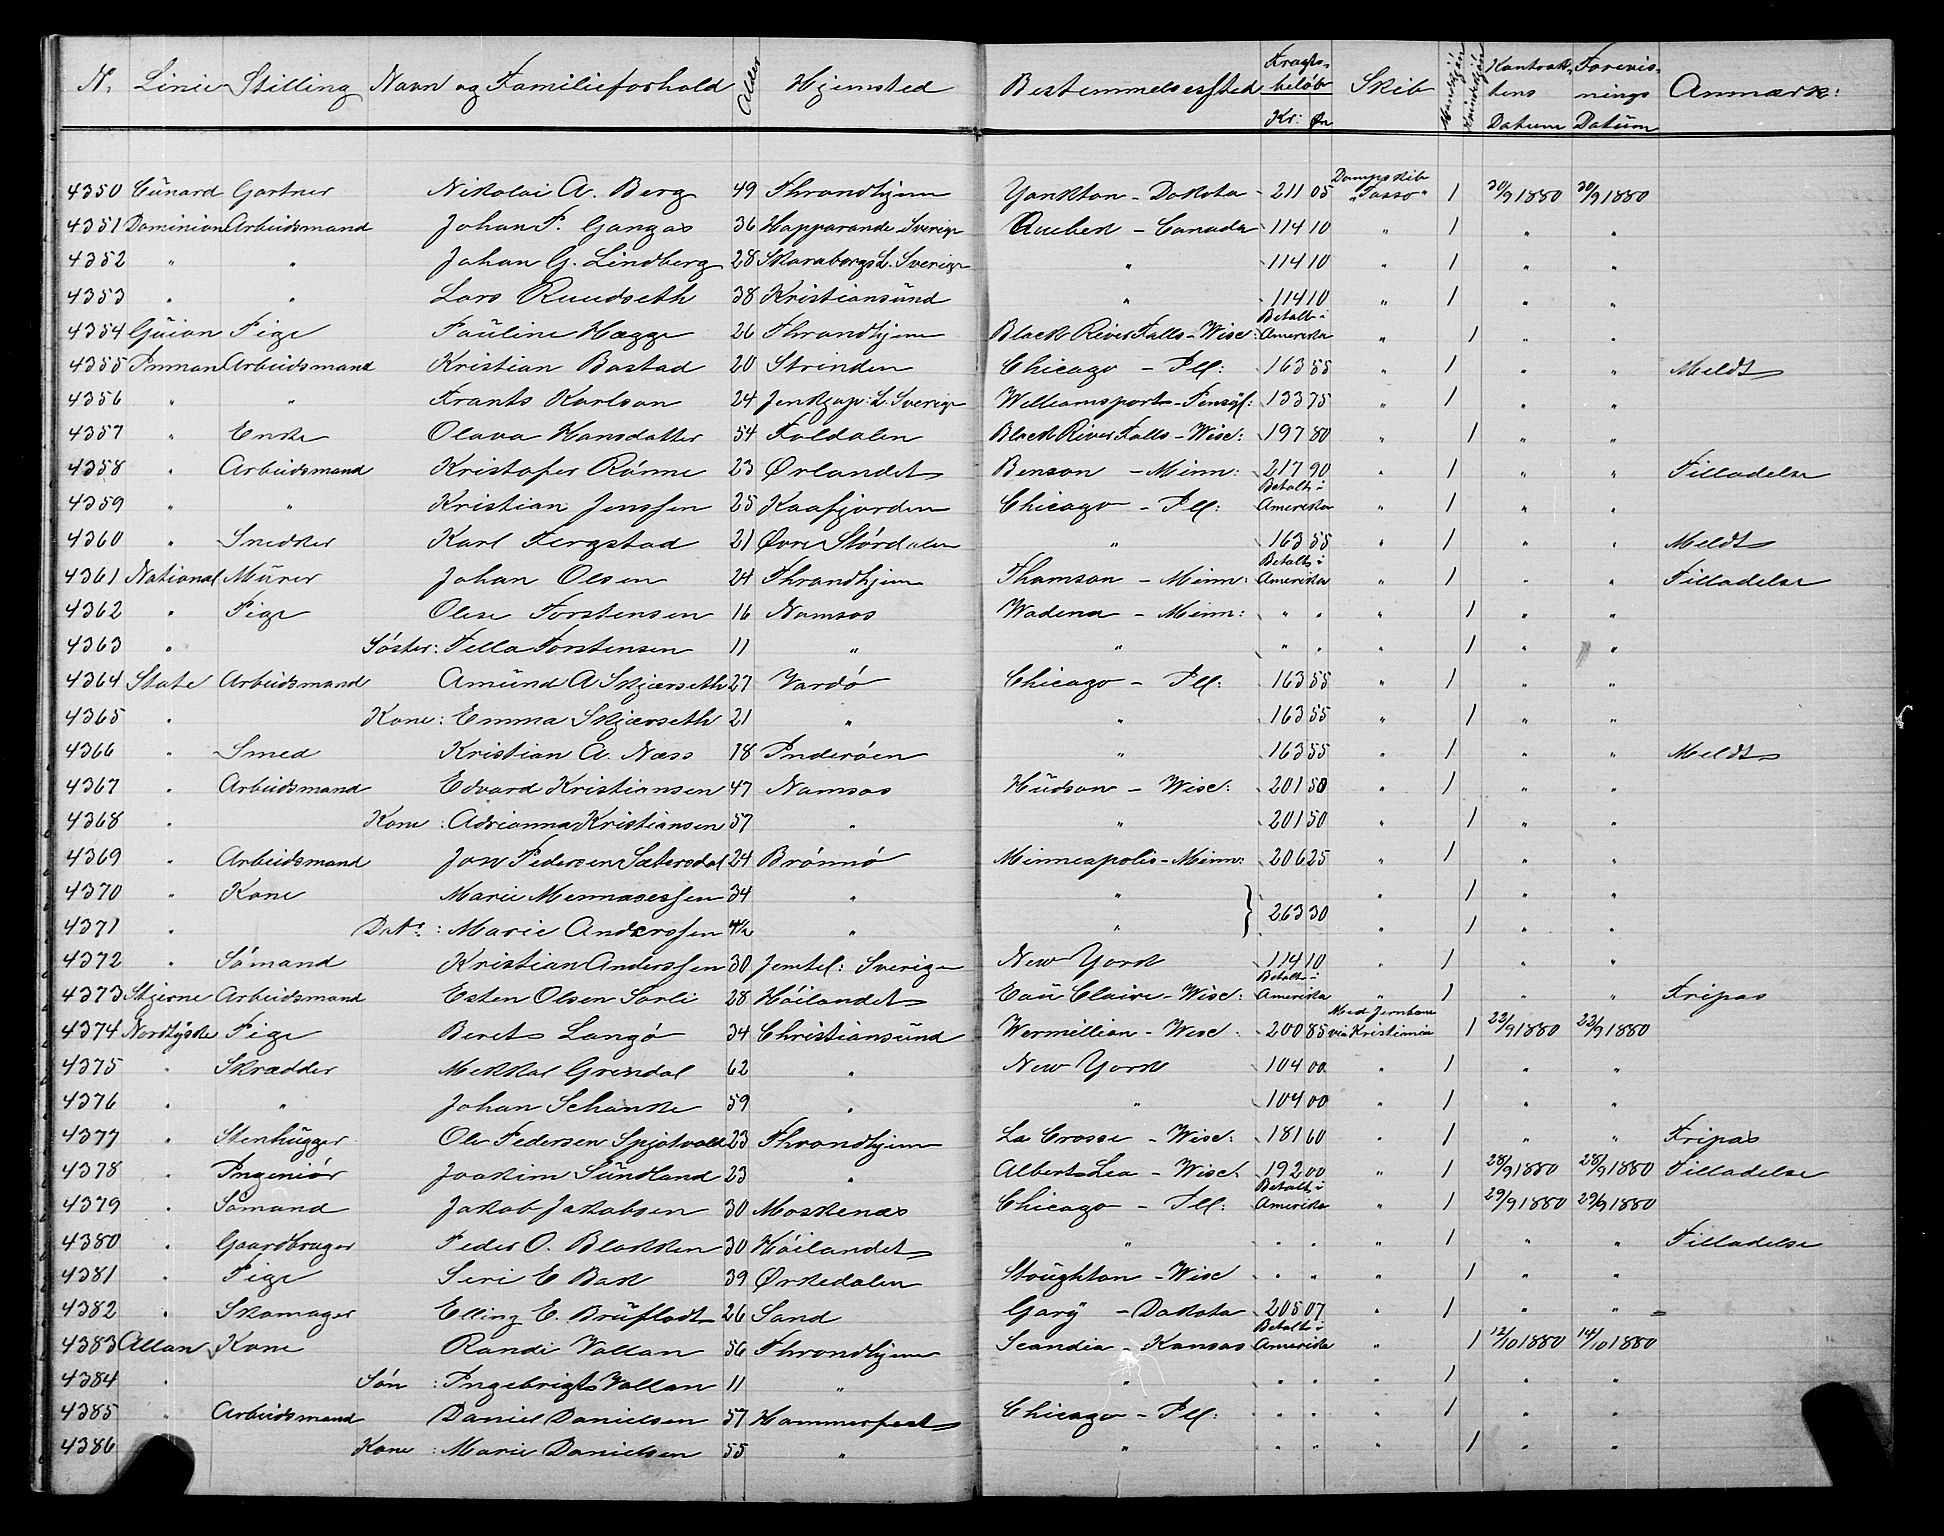 N. Linie Stilling Navn og Familieforhold Alder Hjemsted Bestemmelsessted Fragts-beløb Kr: Øre Skib Mandkjön Kvindekjön Kontraktens Datum Forevisnings Datum Anmærk:
4350 Cunard Gartner Nikolai A. Berg 49 Throndhjem Yankton - Dakota 211 05 Dampskib "Tasso" 1 30/9 1880 30/9 1880
4351 Dominion Arbeidsmand Johan P. Gangas 36 Happarande Sverige Quebek - Canada 114 10 " 1 " "
4352 " " Johan G. Lindberg 28 Skaraborgs L. Sverige " 114 10 " 1 " "
4353 " " Lars Ruudseth 38 Kristiansund " 114 10 " 1 " "
4354 Guion Pige Pauline Hægge 26 Throndhjem Black River Falls - Wisc: Betalt i Amerika " 1 " "
4355 Inman Arbeidsmand Kristian Bastad 20 Strinden Chicago - Ill: 163 55 " 1 " " Meldt
4356 " " Frants Karlson 24 Jenkjøp: L. Sverige Williamsport - Pensyl: 133 75 " 1 " "
4357 " Enke Olava Hansdatter 54 Foldalen Black River Falls - Wisc: 197 80 " 1 " "
4358 " Arbeidsmand Kristofer Rönne 23 Ørlandet Benson - Minn: 217 90 " 1 " " Tilladelse
4359 " " Kristian Jenssen 25 Kaafjorden Chicago - Ill: Betalt i Amerika " 1 " "
4360 " Snedker Karl Fergstad 21 Øvre Stördalen " 163 55 " 1 " " Meldt
4361 National Murer Johan Olsen 24 Throndhjem Thomson - Minn: Betalt i Amerika " 1 " " Tilladelse
4362 " Pige Olise Torstensen 16 Namsos Wadena - Minn: " " " 1 " "
4363 " Söster: Pella Torstensen 11 " " " " " 1 " "
4364 State Arbeidsmand Amund A Skjærseth 27 Vardö Chicago - Ill: 163 55 " 1 " "
4365 " Kone: Emma Skjærseth 21 " " 163 55 " 1 " "
4366 " Smed Kristian A. Næss 18 Inderöen " 163 55 " 1 " " Meldt
4367 " Arbeidsmand Edvard Kristiansen 47 Namsos Hudson - Wisc: 201 50 " 1 " "
4368 " Kone: Adrianna Kristiansen 57 " " 201 50 " 1 " "
4369 " Arbeidsmand Jon Pedersen Sætersdal 24 Brönnö Minneapolis - Minn: 206 25 " 1 " "
4370 " Kone Marie Mennasessen 34 " " } 263 30 " 1 " "
4371 " Datr: Marie Anderssen 4 1/2 " " " 1 " "
4372 " Sömand Kristian Anderssen 30 Jemtel: Sverige New York 114 10 " 1 " "
4373 Stjerne Arbeidsmand Esten Olsen Sørli 28 Höilandet Eau Claire - Wisc: Betalt i Amerika " 1 " " Fripas
4374 Nordtydske Pige Beret Langö 34 Christiansund Wermillian - Wisc: 200 85 Med Jernbane via Kristiania 1 23/9 1880 23/9 1880
4375 " Skrædder Mekkal Grendal 62 " New York 104 00 " 1 " "
4376 " " Johan Schanke 59 " " 104 00 " 1 " "
4377 " Stenhugger Ole Pedersen Spjotvold 23 Throndhjem La Crosse - Wisc: 181 60 " 1 " " Fripas
4378 " Ingeniör Joakim Sundland 23 " Albert Lea - Wisc: 192 00 " 1 28/9 1880 28/9 1880 Tilladelse
4379 " Sömand Jakob Jakobsen 30 Moskenæs Chicago - Ill: Betalt i Amerika " 1 29/9 1880 29/9 1880
4380 " Gaardbruger Peder O. Blakken 30 Höilandet " " " " 1 " " Tilladelse
4381 " Pige Seri E Bak 39 Ørkedalen Stoughton - Wisc " " " 1 " "
4382 " Skomager Elling E. Bruflodt 26 Sand Gary - Dakota 205 07 " 1 " "
4383 Allan Kone Randi Vollan 56 Throndhjem Scandia - Kansas Betalt i Amerika " 1 12/10 1880 14/10 1880
4384 " Sön: Ingebrigt Vollan 11 " " " " " 1 " "
4385 " Arbeidsmand Daniel Danielsen 57 Hammerfest Chicago - Ill: " " " 1 " "
4386 Kone: Marie Danielsen 55 " " " " " 1 " "